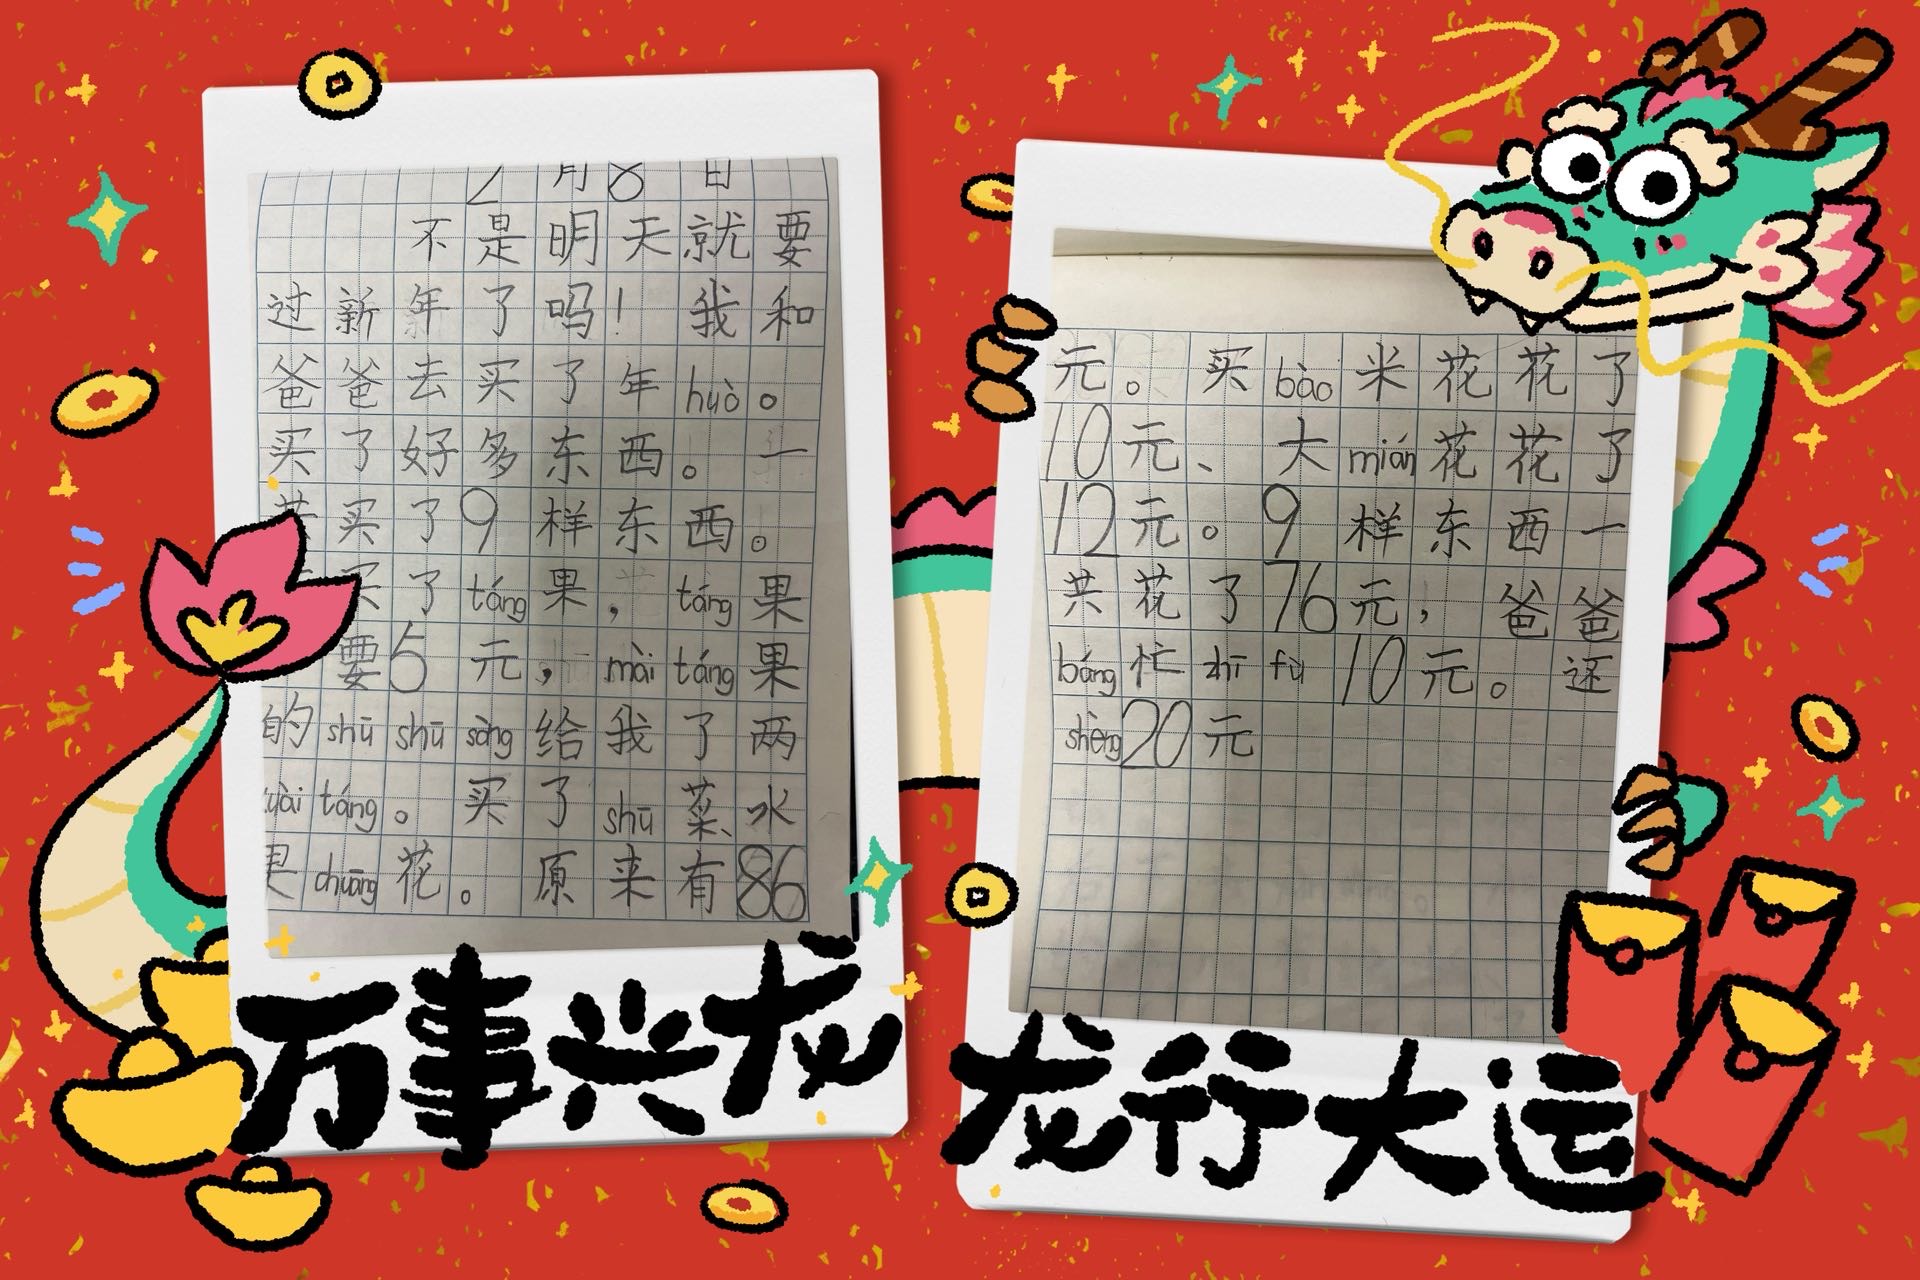 2月8日
不是明天就要
过新年了吗！我和
爸爸去买了年huò。
买了好多东西。一
共买了9样东西。
买了táng果，táng果
要5元，mài táng果
的shū shū sòng给我了两
kuài táng。买了shū菜、水
是chuāng花。原来有86
万事兴龙
元。买bào米花花了
10元、大mián花花了
12元。9样东西一
共花了76元，爸爸
báng忙zhī fù 10元。还
shèng20元
龙行大运